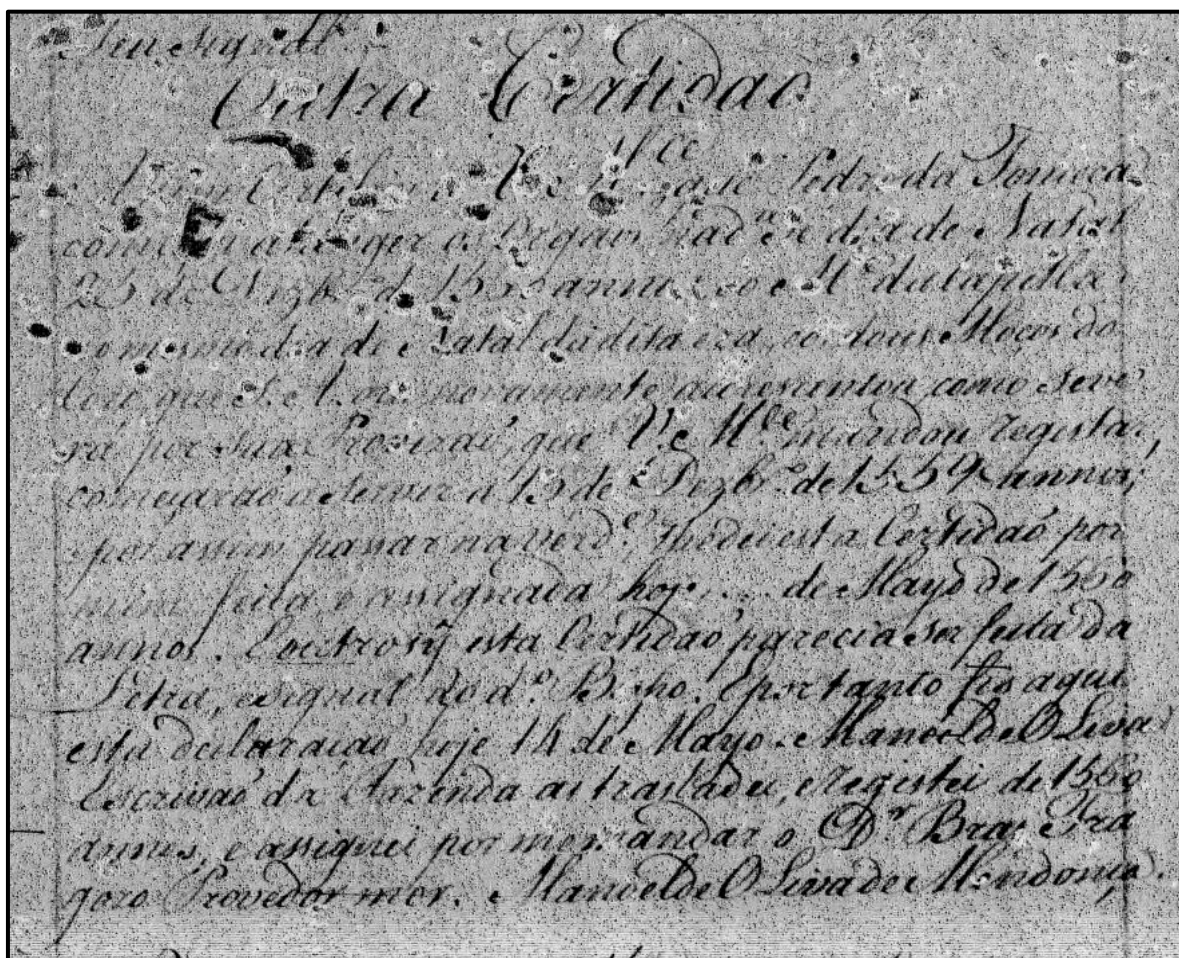 seu signal.
Outra Certidaõ
M.ce
Pedro da Fonseca
tanger os Orgaõs nad.ª Sé dia de Natal
25 de Dezbr.º de 155 annos, eo M.e dacapella
o mesmo dia de Natal da dita era, eos dous Moços do
Coro, que S. A. ora novamente accrescentou, como seve
rá por sua Provizaõ, que V. M.ce mandou registar,
começaraõ a servir a 15 de Dezbr.º de 1559 annos;
epor assim passar na verd.e, lhe dei esta Certidaõ por
mim feita e assignada hoje .... de Mayo de 1560
annos. Eoutrosy esta Certidaõ parecia ser feita da
Letra, esignal do d.º Bispo. Eportanto fis aqui
esta declaraçaõ hoje 14 de Mayo. Manoel de Oliva
Escrivaõ da Fazenda as trasladei, eregistei de 1560
annos, e assignei por me mandar o D.or Bras Fra
gozo Provedor mor. Manoel de Oliva de Mendonça.